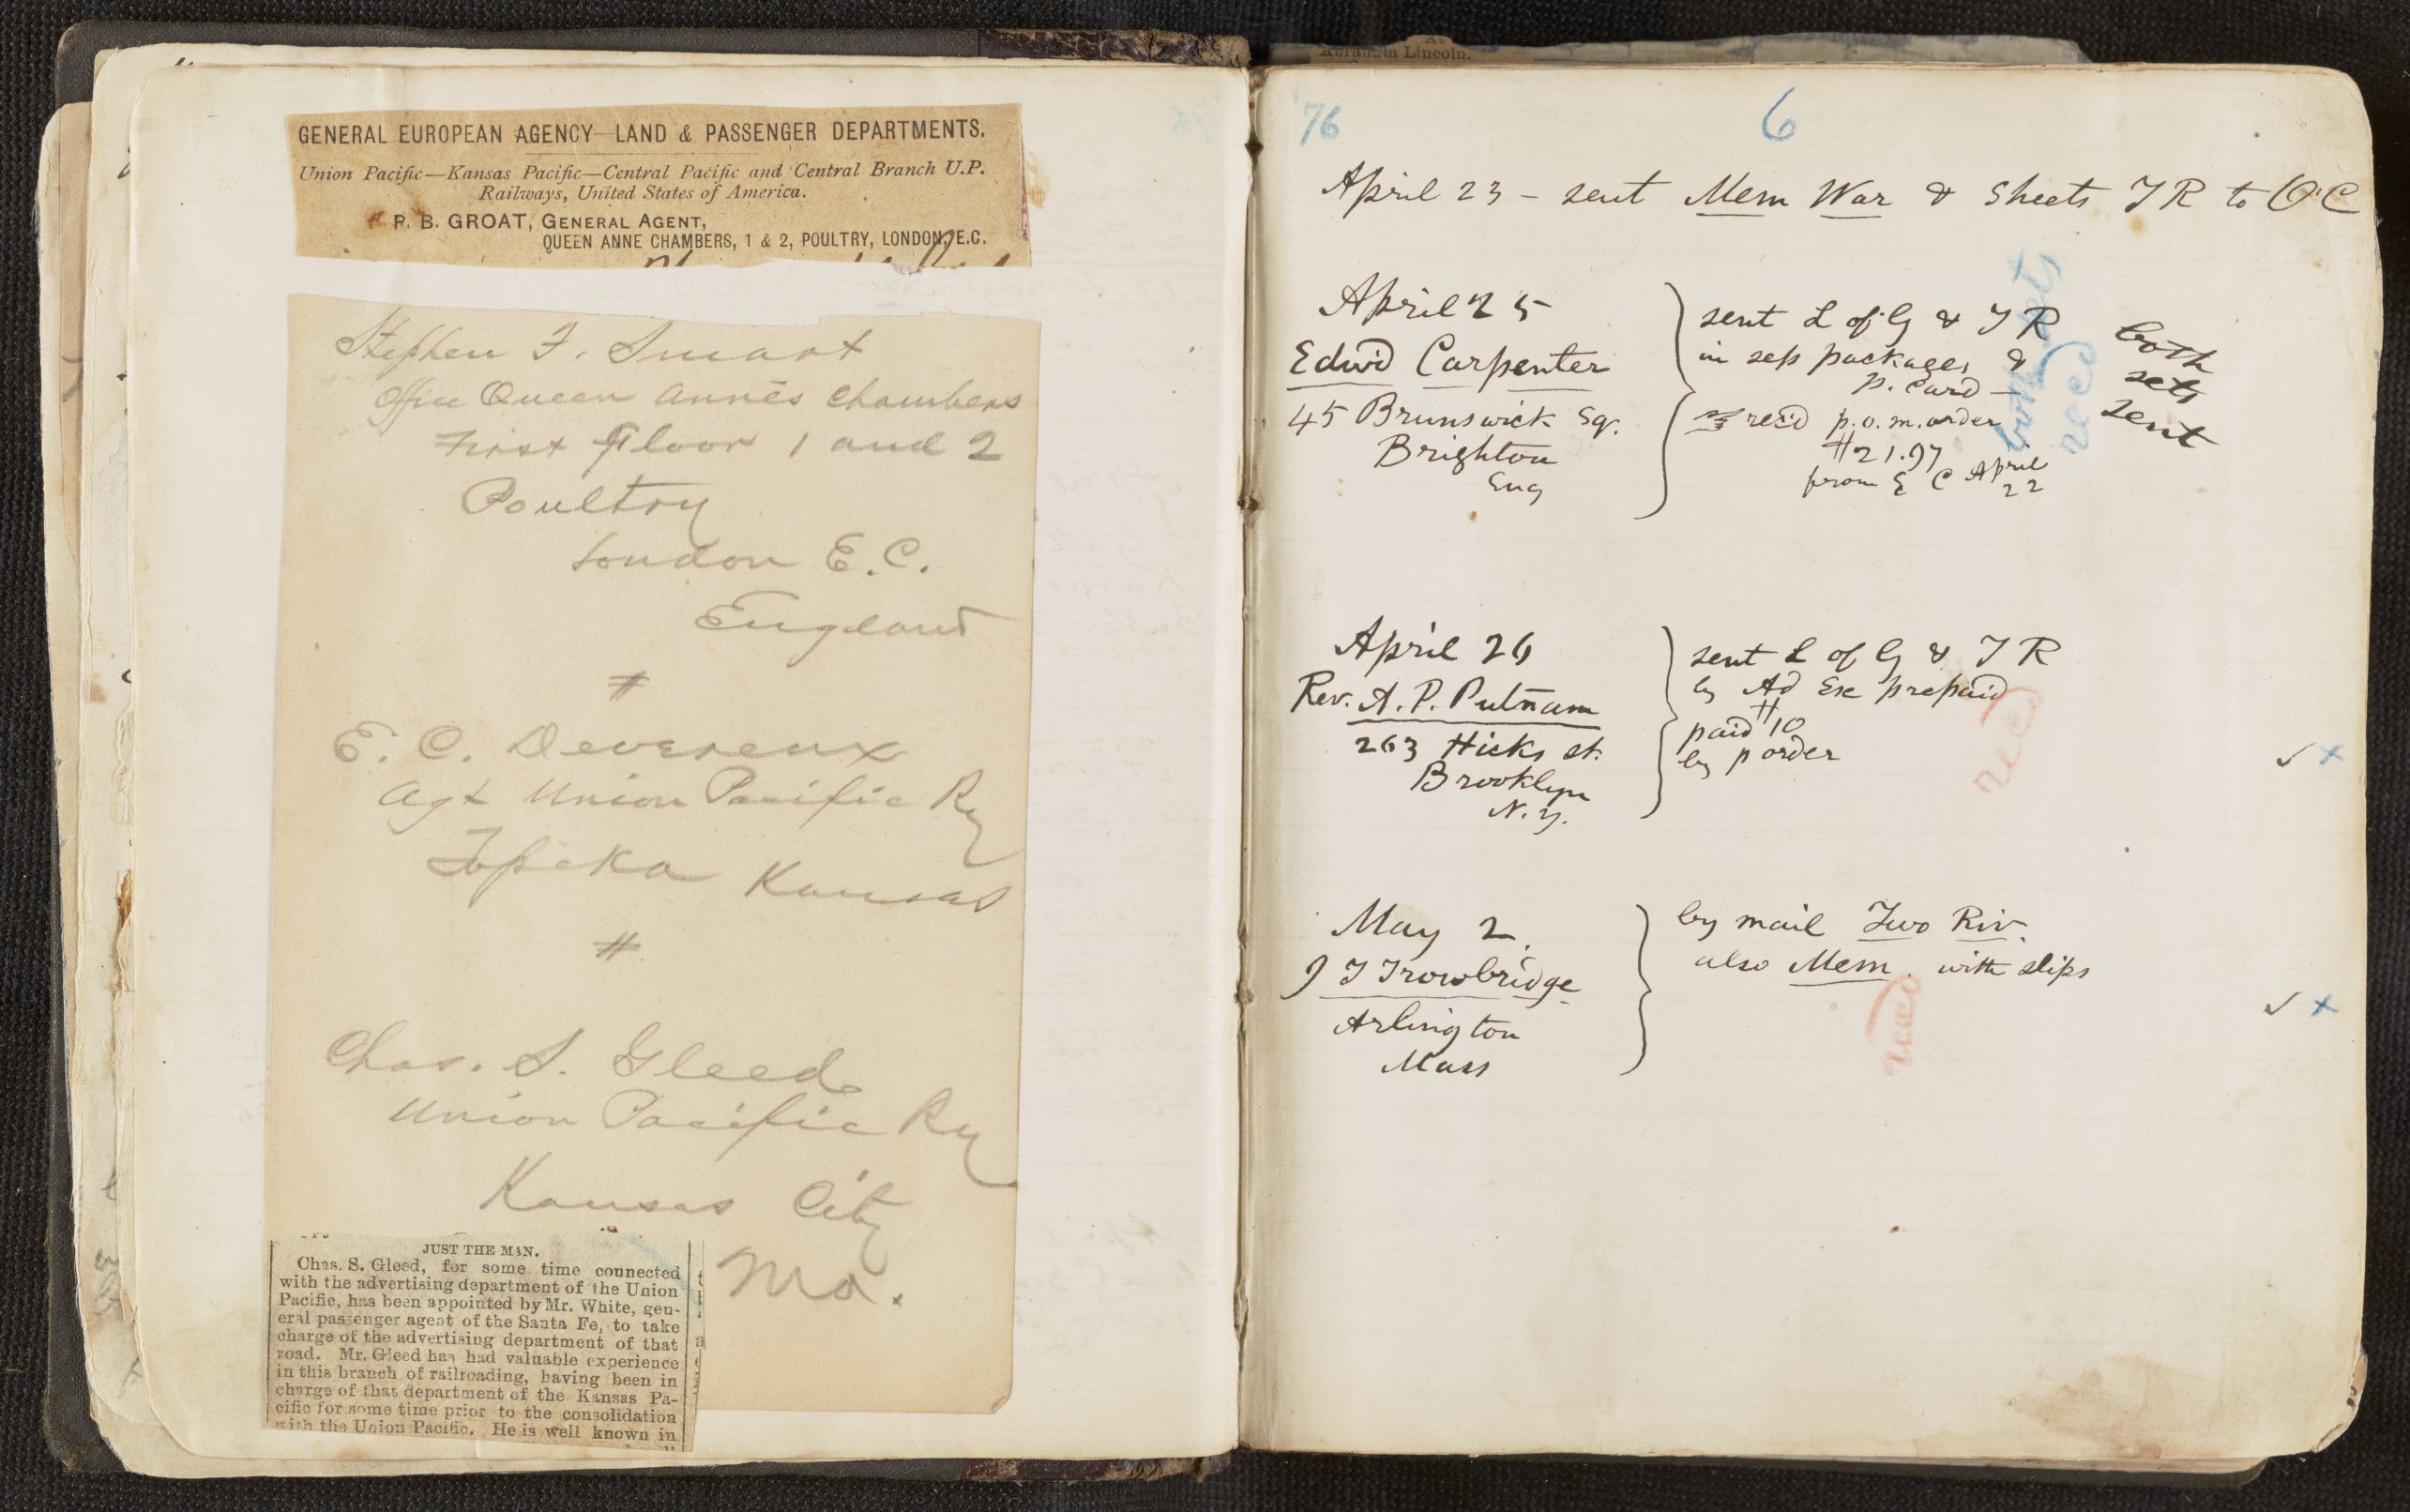 GENERAL EUROPEAN AGENCY—LAND & PASSENGER DEPARTMENTS.
Union Pacific—Kansas Pacific—Central Pacific and Central Branch U.P.
Railways, United States of America.
P. B. GROAT, GENERAL AGENT,
QUEEN ANNE CHAMBERS, 1 & 2, POULTRY, LONDON, E.C.
Stephen F. Smart
Office Queen Anne's Chambers
First Floor 1 and 2
Poultry
London E.C.
England
#
E. C. Devereux
Agt Union Pacific Ry
Topeka Kansas
#
Chas. S. Gleed
Union Pacific Ry
Kansas City
Mo.
JUST THE MAN.
Chas. S. Gleed, for some time connected
with the advertising department of the Union
Pacific, has been appointed by Mr. White, gen-
eral passenger agent of the Santa Fe, to take
charge of the advertising department of that
road. Mr. Gleed has had valuable experience
in this branch of railroading, having been in
charge of that department of the Kansas Pa-
cific for some time prior to the consolidation
with the Union Pacific. He is well known in
Abraham Lincoln.
76
6
April 23 – sent Mem War & Sheets T R to O'C
April 25
Edwd Carpenter
45 Brunswick Sq.
Brighton
Eng
sent L of G & T R
in sep packages &
p. Card –
rec'd p.o.m. order
$21.97
from E C April
22
both sets
rec'd
both
sets
sent
April 26
Rev. A. P. Putnam
263 Hicks st.
Brooklyn
N. Y.
sent L of G & T R
by Ad Exc prepaid
paid $10
by p order
rec'd
✓ x
May 2.
J T Trowbridge
Arlington
Mass
by mail Two Riv.
also Mem. with slips
rec'd
✓ x